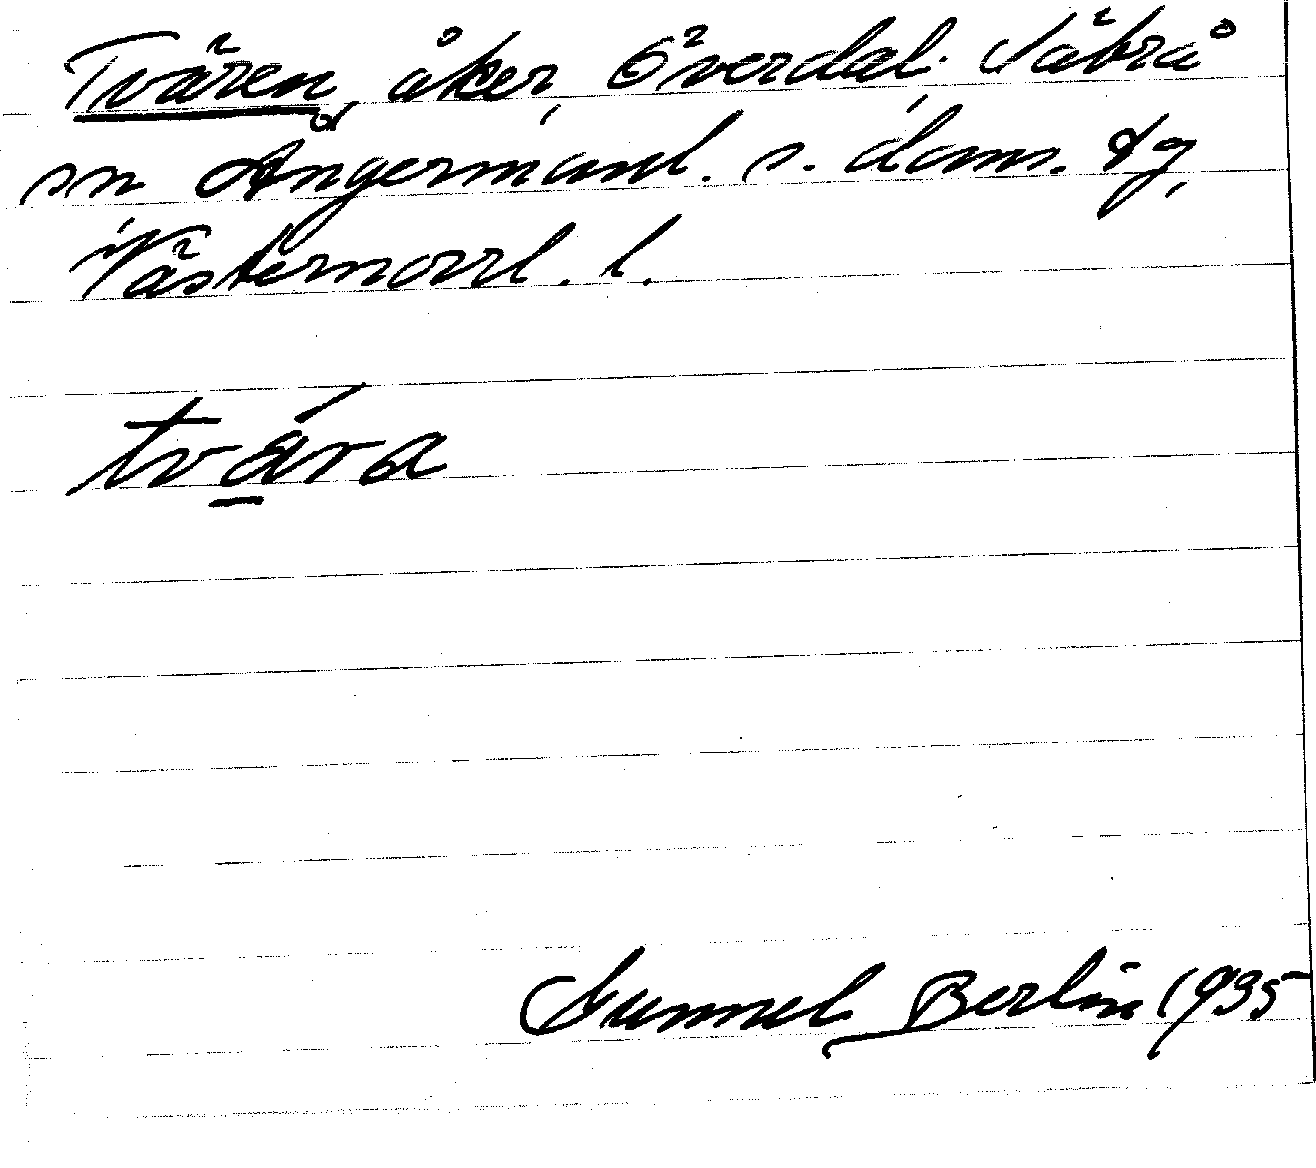 Tvären, åker, Överdal. Säbrå
sn Ångermanl. s. doms. dg,
Västernorrl. l.
tvä́ra
Gunnel Berlin 1935